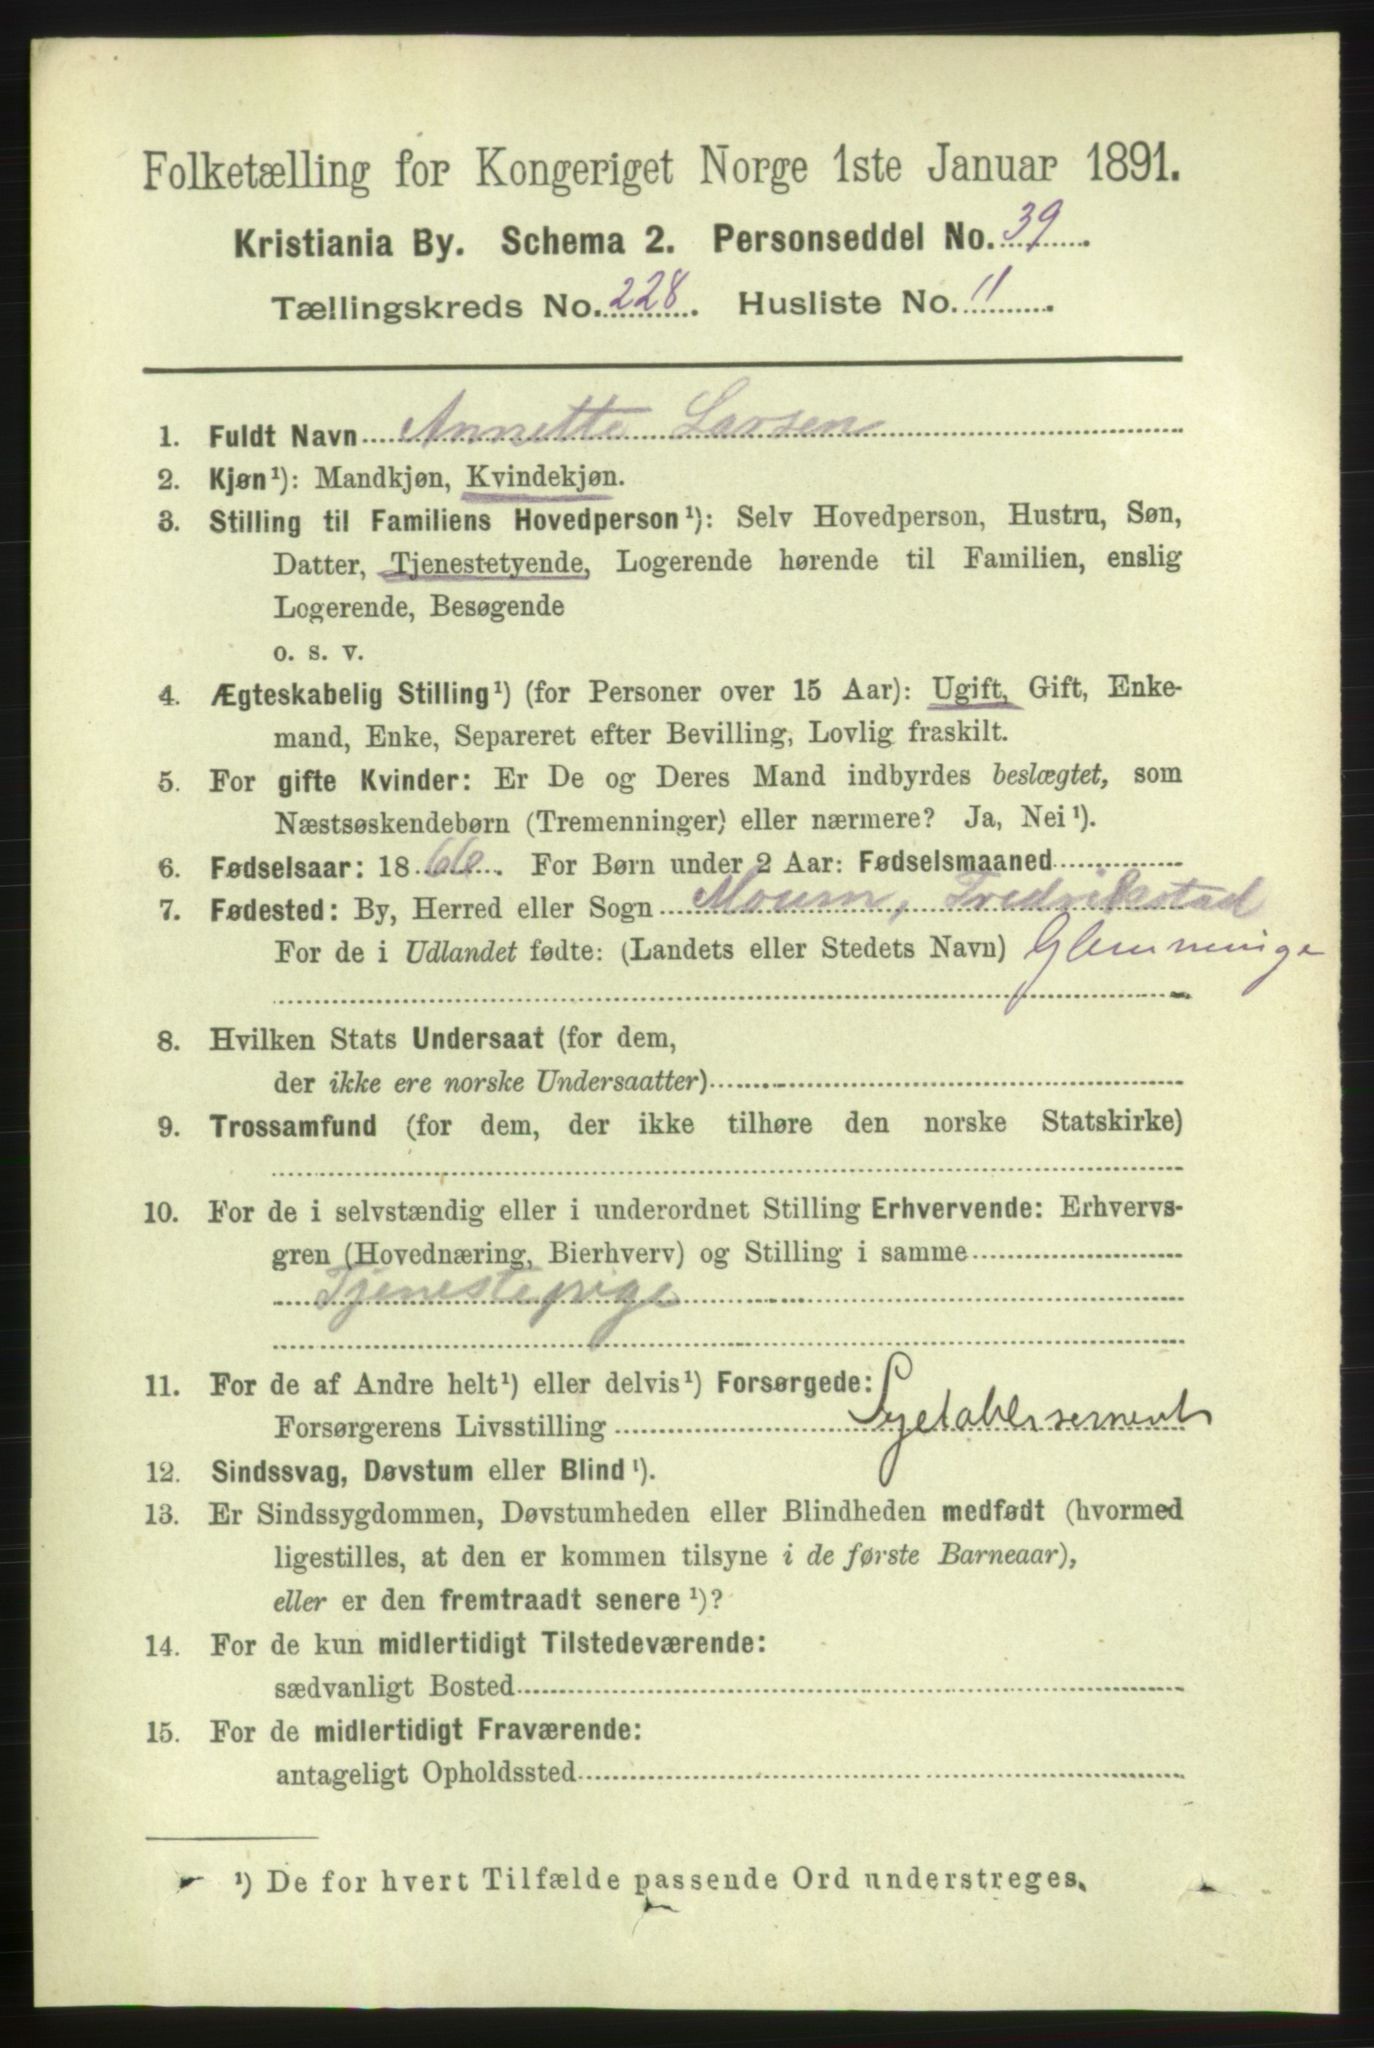 Folketælling for Kongeriget Norge 1ste Januar 1891.
Kristiania By. Schema 2. Personseddel No. 39.
Tællingskreds No. 228. Husliste No. 11.
1. Fuldt Navn Annette Larsen
2. Kjøn¹): Mandkjøn, Kvindekjøn.
3. Stilling til Familiens Hovedperson¹): Selv Hovedperson, Hustru, Søn,
Datter, Tjenestetyende, Logerende hørende til Familien, enslig
Logerende, Besøgende
o. s. v.
4. Ægteskabelig Stilling¹) (for Personer over 15 Aar): Ugift, Gift, Enke-
mand, Enke, Separeret efter Bevilling, Lovlig fraskilt.
5. For gifte Kvinder: Er De og Deres Mand indbyrdes beslægtet, som
Næstsøskendebørn (Tremenninger) eller nærmere? Ja, Nei¹).
6. Fødselsaar: 1866. For Børn under 2 Aar: Fødselsmaaned
7. Fødested: By, Herred eller Sogn Moum, Fredrikstad
For de i Udlandet fødte: (Landets eller Stedets Navn) Glemminge
8. Hvilken Stats Undersaat (for dem,
der ikke ere norske Undersaatter)
9. Trossamfund (for dem, der ikke tilhøre den norske Statskirke)
10. For de i selvstændig eller i underordnet Stilling Erhvervende: Erhvervs-
gren (Hovednæring, Bierhverv) og Stilling i samme
Tjenestepige
11. For de af Andre helt¹) eller delvis¹) Forsørgede:
Forsørgerens Livsstilling Syetablissement
12. Sindssvag, Døvstum eller Blind¹).
13. Er Sindssygdommen, Døvstumheden eller Blindheden medfødt (hvormed
ligestilles, at den er kommen tilsyne i de første Barneaar),
eller er den fremtraadt senere¹)?
14. For de kun midlertidigt Tilstedeværende:
sædvanligt Bosted
15. For de midlertidigt Fraværende:
antageligt Opholdssted
¹) De for hvert Tilfælde passende Ord understreges.